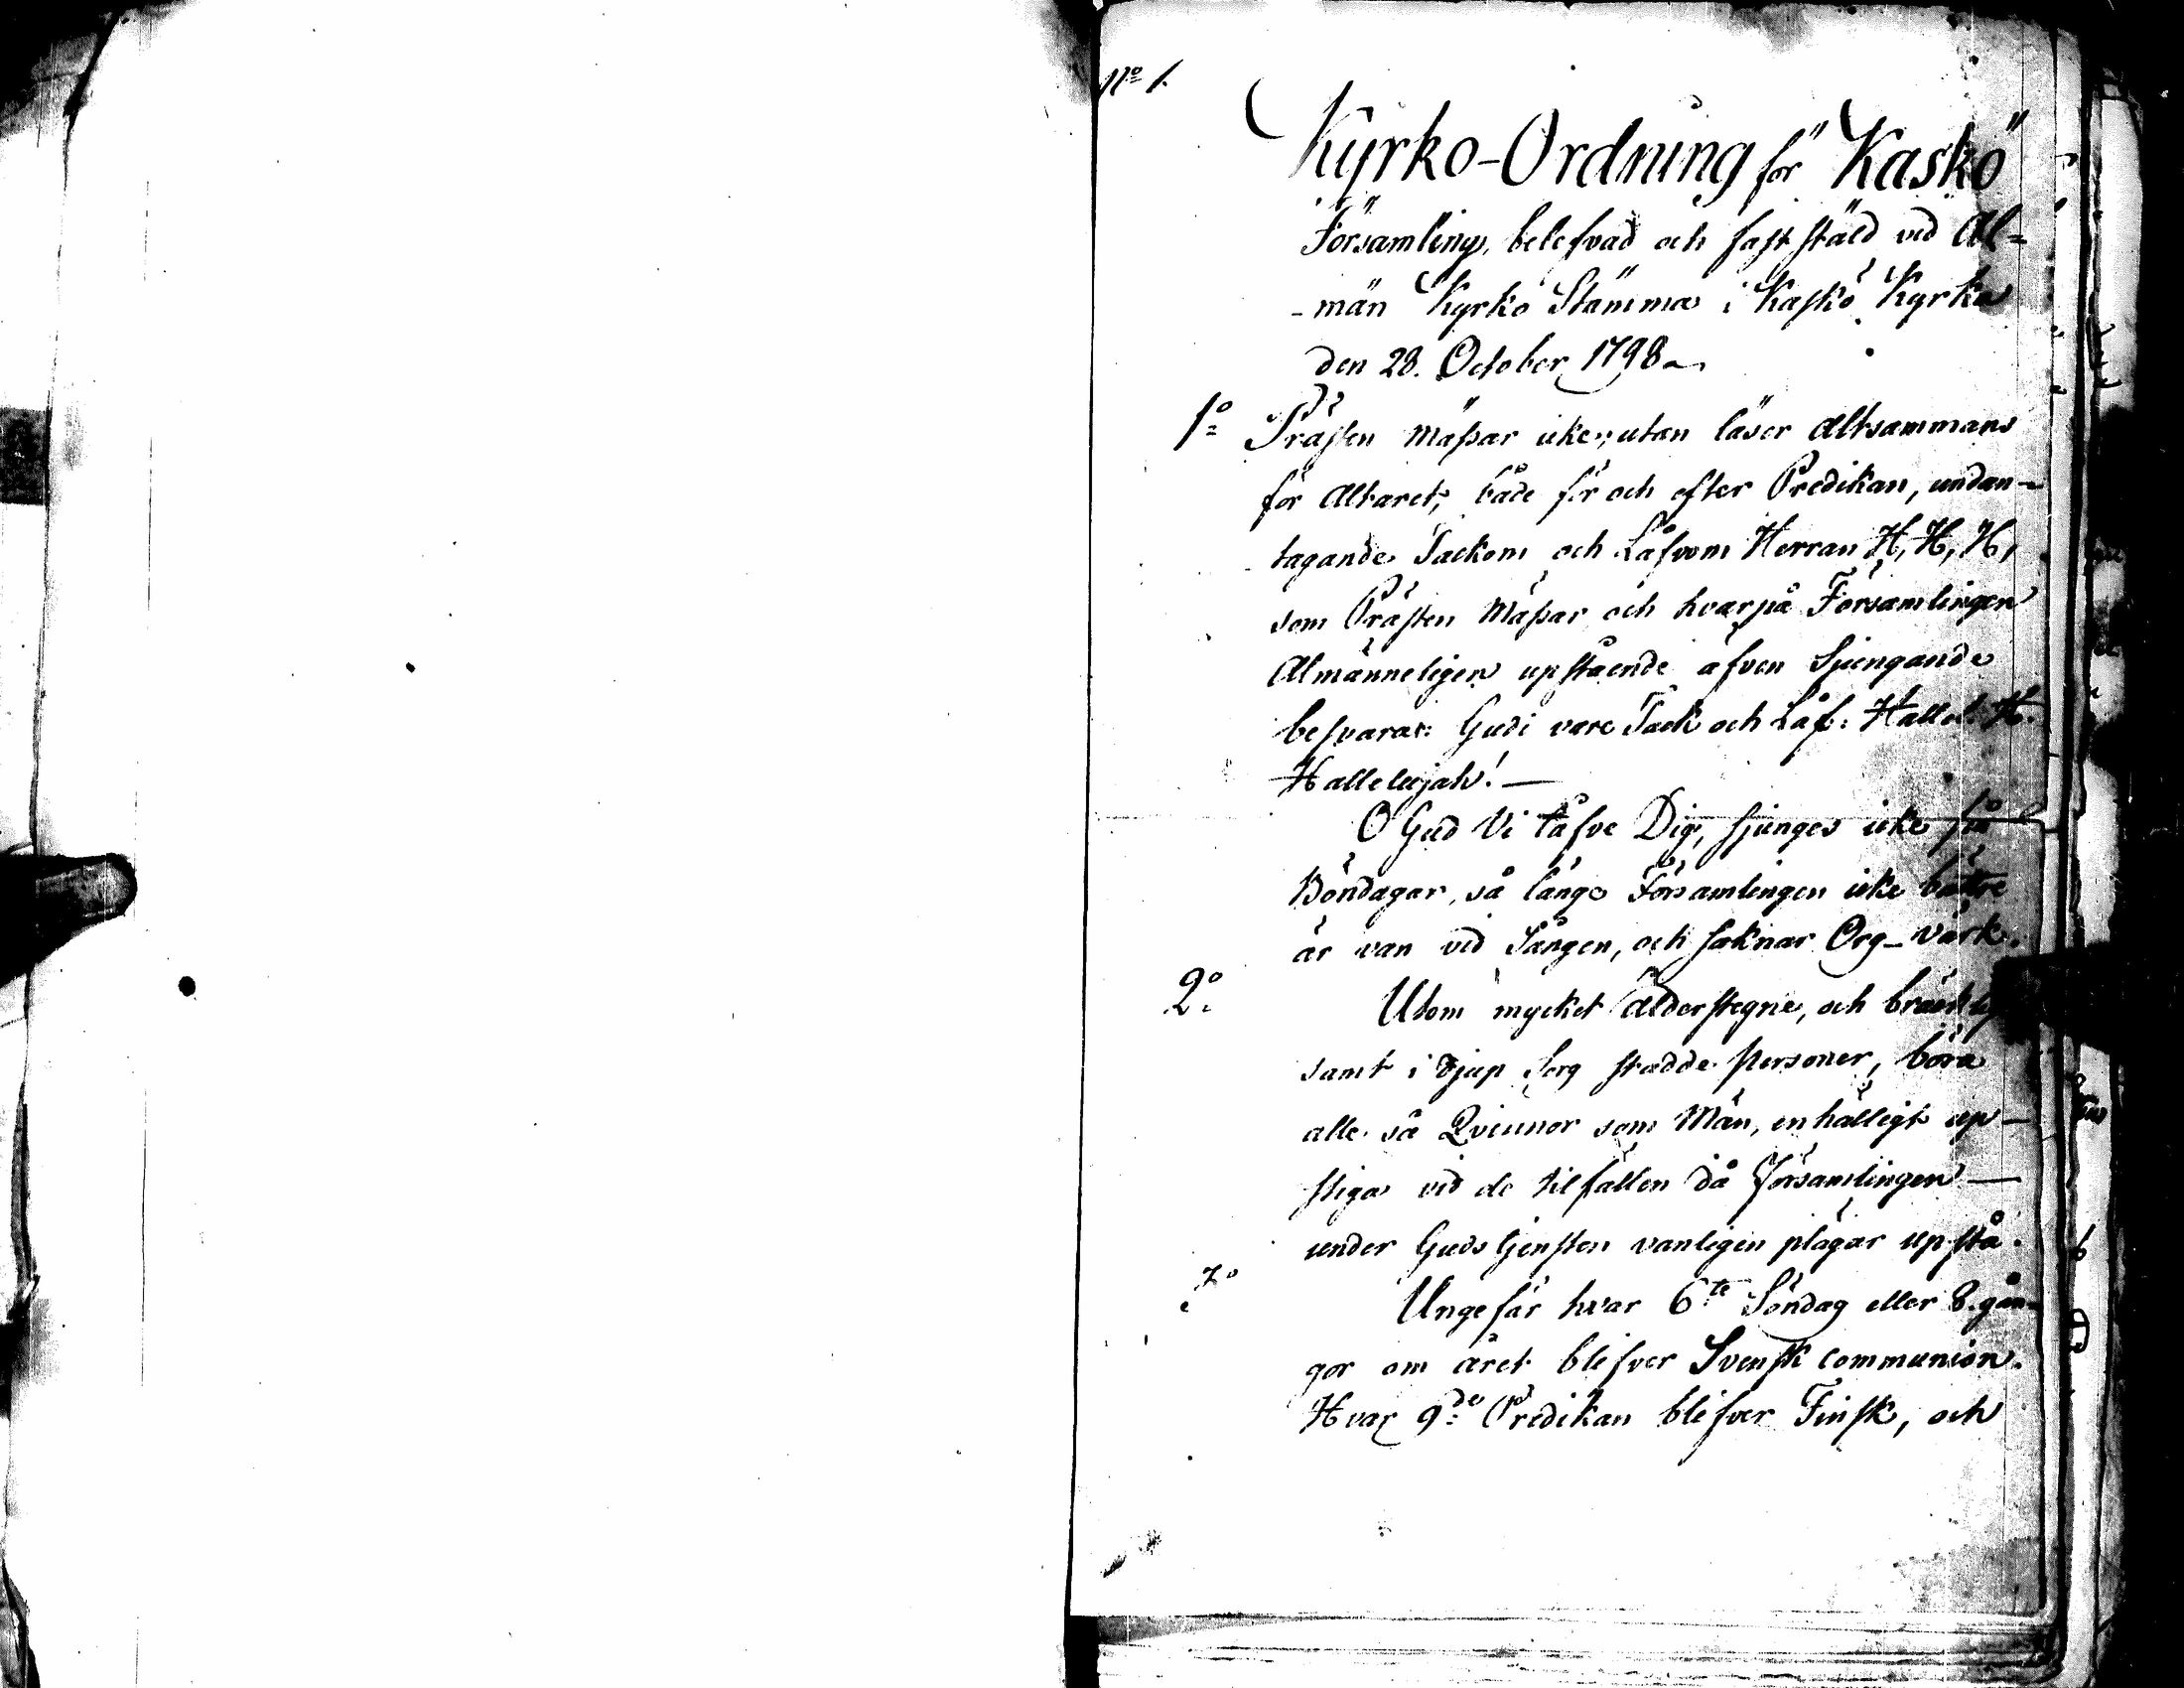 No 1.
Kyrko-Ordning för Kaskö
Församling, belefvad och fastställd vid Al=
-män Kyrko Stämma i Kaskö Kyrka
den 28. October 1798.
1o Prästen mässar icke, utan läser altsammans
för Altaret, både för och efter Predikan, undan-
tagande Tackom och Låfvom Herran H, H, H,
som Prästen Mässar och hvarpå Församlingen
Almänneligen upstående äfven Sjungande
besvarar: Gudi vare Tack och Låf: Hallel: H.
Hallelujah! —
O Gud Vi låfve Dig, sjunges icke på
Böndagar, så länge Församlingen icke bättre
är van vid Sången, och saknar Org-värk.
2o Utom mycket ålderstegne, och bräcklig
samt i djup Sorg stadde personer, böra
alle så Qvinnor som Män, enhälligt up-
stiga vid de tilfällen då Församlingen —
under Gudstjensten vanligen plägar upstå.
3o Ungefär hvar 6te Söndag eller 8 gån-
gor om året blifver Svensk communion.
Hvar 9de Predikan blifver Finsk, och